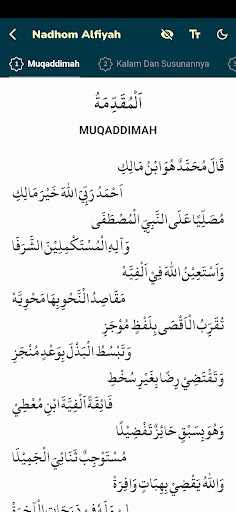 Nadhom Alfiyah
1 Muqaddimah
2 Kalam Dan Susunannya
اَلْمُقَدِّمَةُ
MUQADDIMAH
قَالَ مُحَمَّدٌ هُوَ ابْنُ مَالِكِ
اَحْمَدُ رَبِّيَ اللهَ خَيْرَ مَالِكِ
مُصَلِّيًا عَلَى النَّبِيِّ الْمُصْطَفَى
وَآلِهِ الْمُسْتَكْمِلِيْنَ الشَّرَفَا
وَاَسْتَعِيْنُ اللهَ فِيْ اَلْفِيَّهْ
مَقَاصِدُ النَّحْوِ بِهَا مَحْوِيَّهْ
تُقَرِّبُ الْاَقْصَى بِلَفْظٍ مُوْجَزِ
وَتَبْسُطُ الْبَذْلَ بِوَعْدٍ مُنْجَزِ
وَتَقْتَضِيْ رِضًا بِغَيْرِ سُخْطِ
فَائِقَةً اَلْفِيَّةَ ابْنِ مُعْطِيْ
وَهُوَ بِسَبْقٍ حَائِزٌ تَفْضِيْلًا
مُسْتَوْجِبٌ ثَنَائِيَ الْجَمِيْلَا
وَاللهُ يَقْضِيْ بِهِبَاتٍ وَافِرَةْ